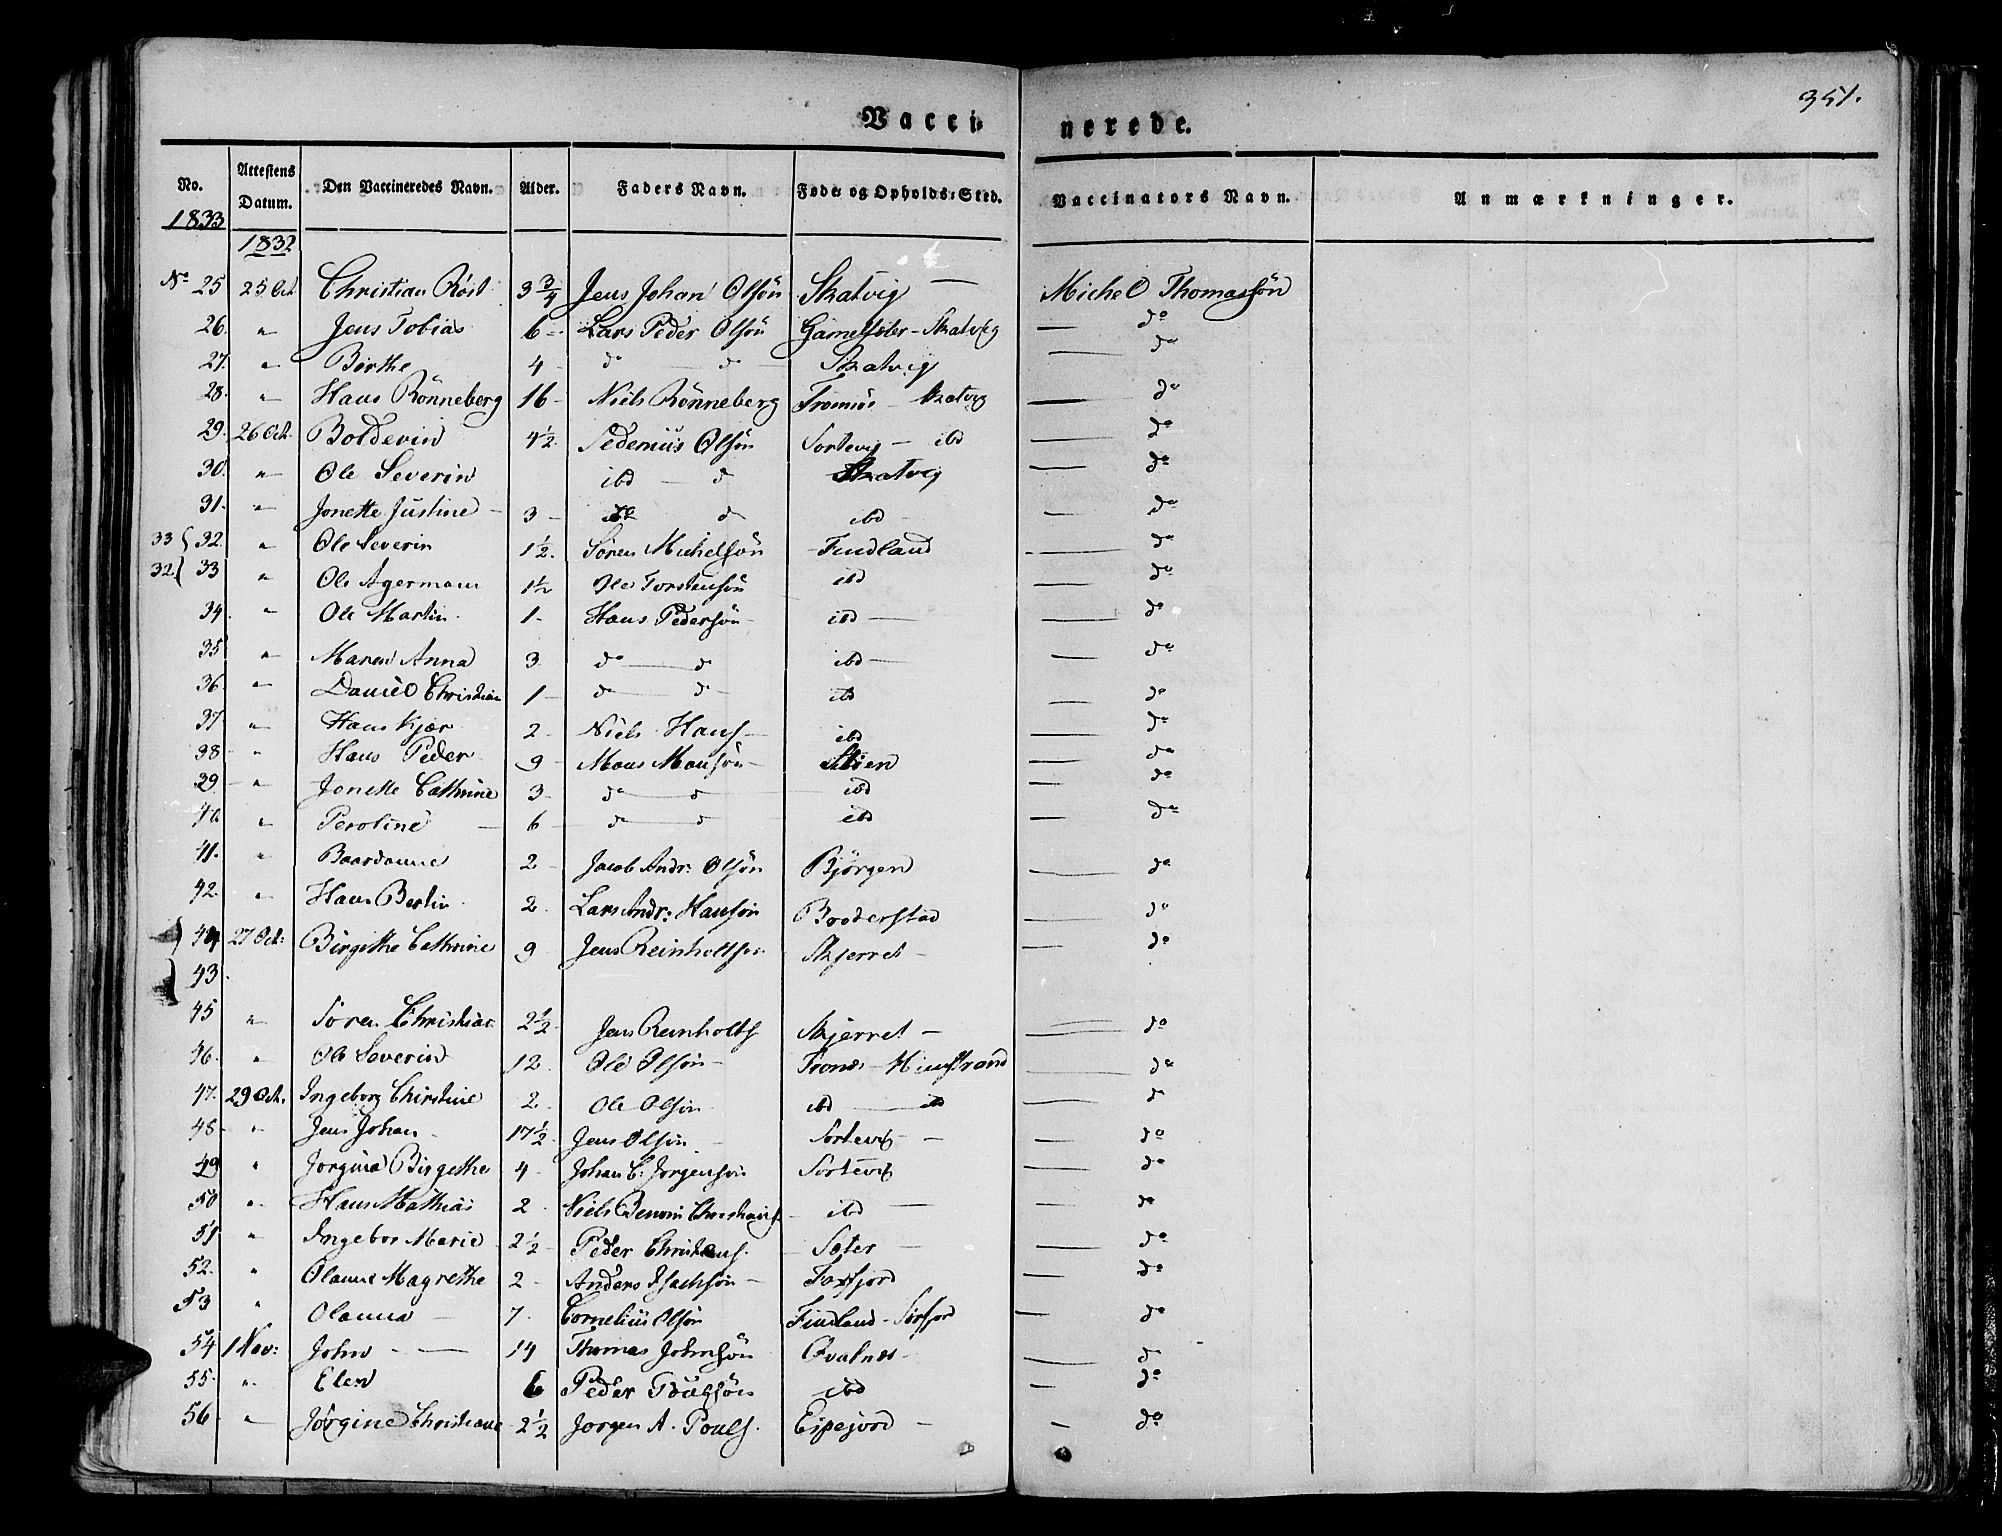 351.
Vaccinerede.
No. Attestens Datum. Den Vaccineredes Navn. Alder. Faders Navn. Føde- og Opholds-Sted. Vaccinators Navn. Anmærkninger.
1833
1832
No 25 25 Oct Christian Röst 3 3/4 Jens Johan Olsön Skatvig — Michel Thomassön
26. " Jens Tobias 6 - Lars Peder Olsön - Skatvig — do
27. " Birthe 4 - do — do Skatvig — do
28. " Hans Rönneberg 16 - Niels Rönneberg Tromsöe - Skatvig — do
29. 26 Oct. Boldevin 4 1/2. Pedenius Olsön Sortevig — ibd — do
30. " Ole Severin ibd — do Skatvig — do
31. " Jonette Justine - 3 - do ibd - — do
33 32. " Ole Severin 1 1/2. Sören Michelsön Findland — do
32 33 " Ole Agermann 1 1/2 Ole Torstensön ibd — do
34. " Ole Martin. 1 - Hans Pedersön - ibd — — do
35 " Maren Anna 3 do — do ibd — — do
36. " Daniel Christian 1 - do — do - ibd — do
37. " Hans Kjær 2 - Niels Hans - ibd — do
38 - " Hans Peder. 9 - Mons Monsön - — do
39 - " Jonette Cathrine 3 - do — do ibd — do
40 " Peroline - 6 - do — do ibd — do
41. " Baardanne 2 - Jacob Andr: Olsön Bjørgen — do
42. " Hans Bertin 2. Lars Andr: Hansön — do
44 27 Oct: Birgithe Cathrine 9 Jens Reinholtsön Skjerret - — do
43.
45 " Sören Christian 2 1/2. Jens Reinholts Skjerret - — do
46. " Ole Severin 12. Ole Olsön - — do
47. 29 Oct. Ingeborg Christine 2. Ole Olsön ibd — ib — do
48 - " Jens Johan - 17 1/2 Jens Olsön - Sortevig - — do
49 " Jörgina Birgethe 4 - Johan C: Jörgensön Sortevig — do
50 " Hans Mathias 2 Niels - ibd — — do
51 " Ingebor Marie 2 1/2 - Peder Christians. - Sæter — — do
52. " Olanne Magrethe 2 - Anders Isachsön - — do
53 " Olanna - 7. Cornelius Olsön Findland - — do
54 1 Nov: John - — 14 Thomas Johnsön Qvalnes - — do
55. " Elen 6 Peder - ibd — do
56 - " Jörgine Christiane 2 1/2 Jörgen A. Pouls. Espejord - — do